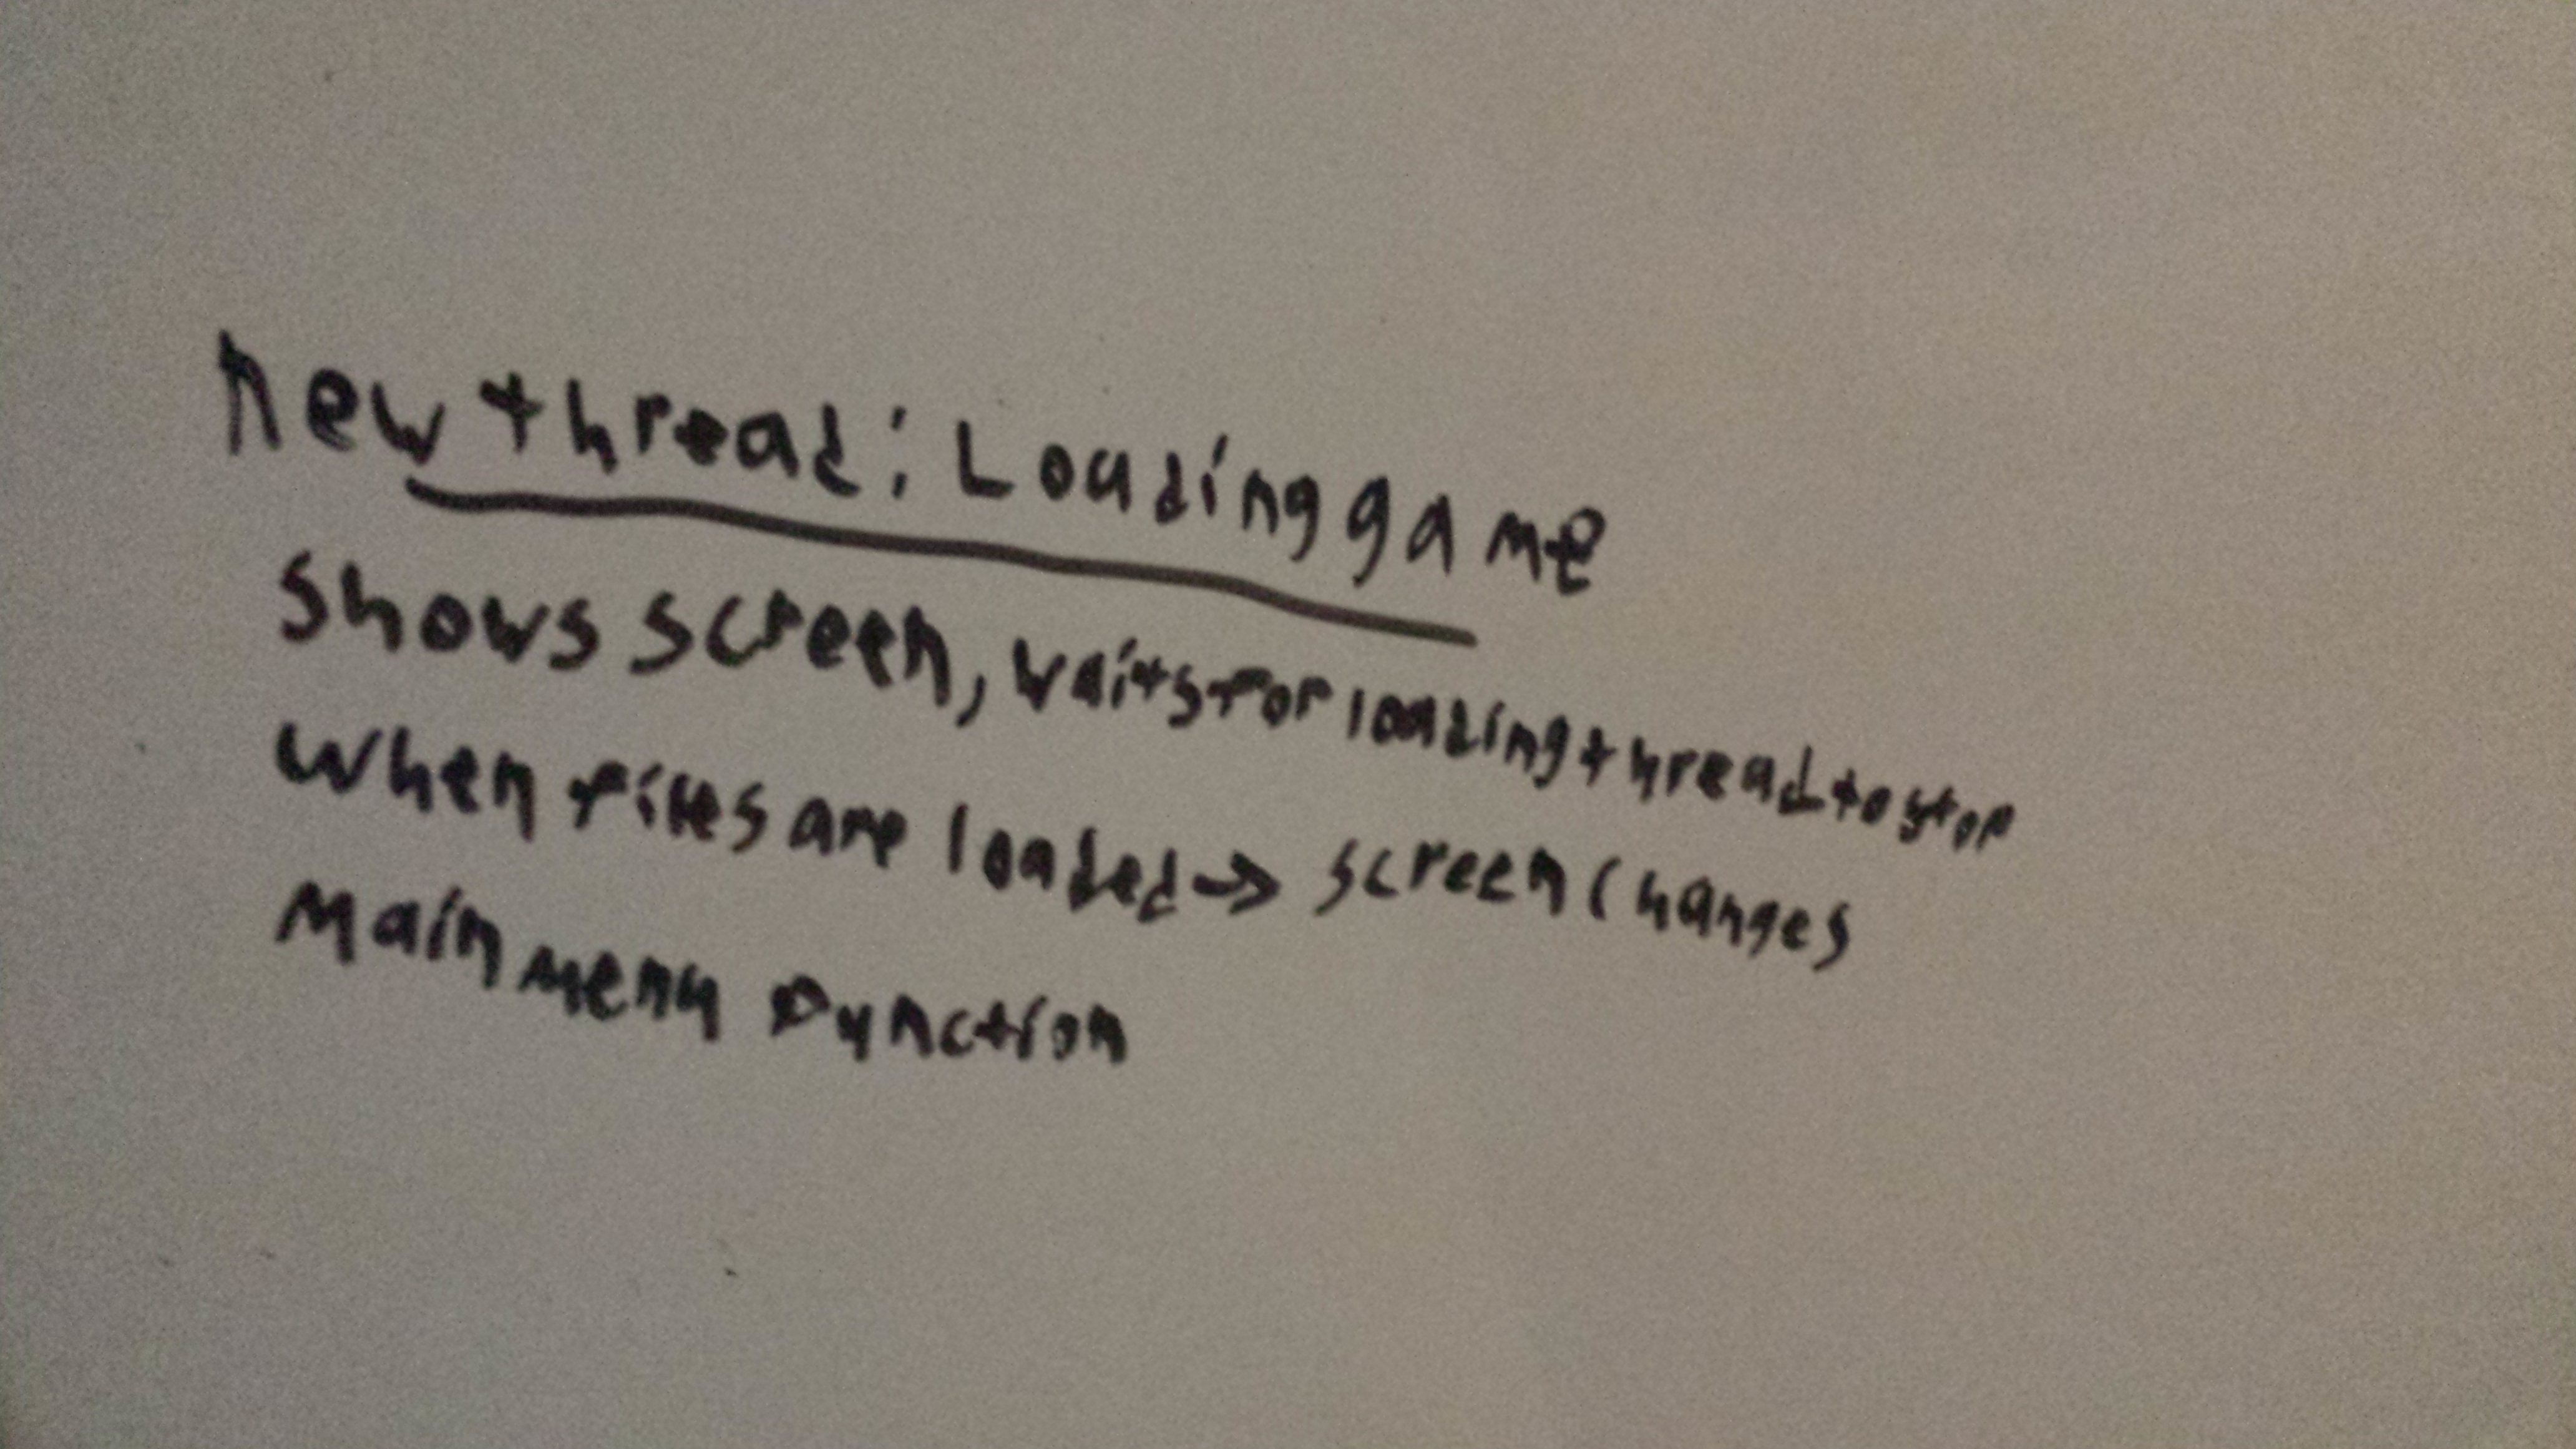 new thread: Loading game
shows screen, waits for loading thread to stop
when files are loaded → screen changes
main menu function